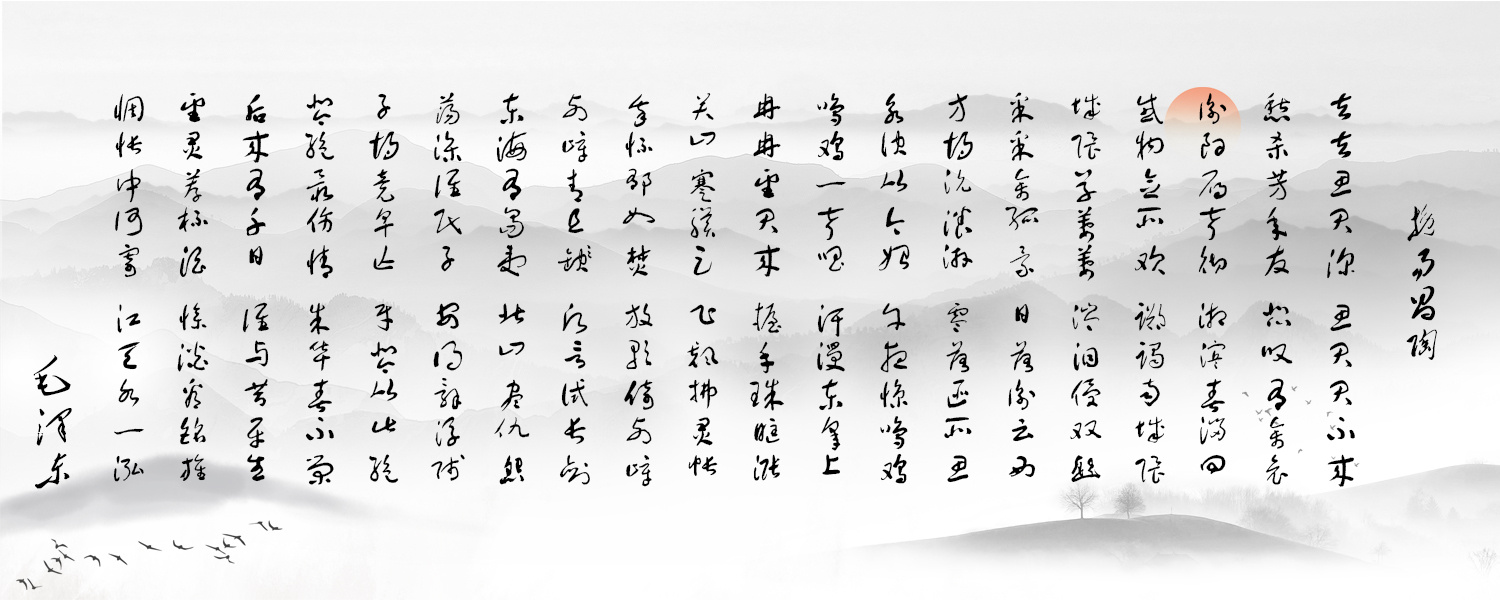 挽易昌陶
去去思君深 思君君不来
愁杀芳年友 悲叹有余哀
衡阳雁声彻 湘滨春溜回
感物念所欢 踯躅南城隈
城隈草萋萋 涔泪侵双题
采采余孤景 日落衡云西
方期沆瀁游 零落匪所思
永诀从今始 午夜惊鸣鸡
鸣鸡一声唱 汗漫东皋上
冉冉望君来 握手珠眶涨
关山蹇骥足 飞飙拂灵帐
我怀郁如焚 放歌倚列嶂
列嶂青且茜 愿言试长剑
东海有岛夷 北山尽仇怨
荡涤谁氏子 安得辞浮贱
子期竟早亡 牙琴从此绝
琴绝最伤情 朱华春不荣
后来有千日 谁与共平生
望灵荐杯酒 惨淡看铭旌
惆怅中何寄 江天水一泓
毛泽东